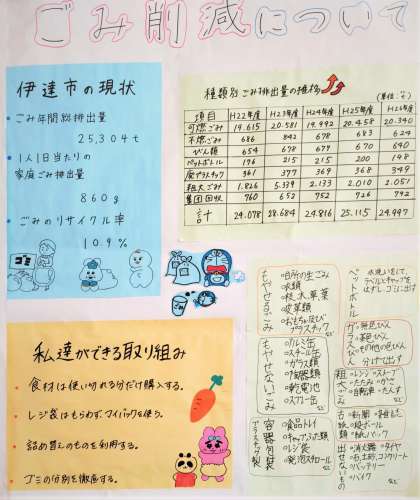 ごみ削減について
伊達市の現状
・ごみ年間別排出量
25,304t
・1人1日当たりの
家庭ごみ排出量
860g
・ごみのリサイクル率
10.9%
ゴミ
種類別ごみ排出量の推移
(単位:t)
項目 H22年度 H23年度 H24年度 H25年度 H26年度
可燃ごみ 19.615 20.581 19.992 20.458 20.340
不燃ごみ 686 842 678 683 624
びん類 654 678 679 670 640
ペットボトル 176 215 215 200 198
廃プラスチック 361 377 369 368 349
粗大ごみ 1.826 5.339 2.133 2.010 2.051
集団回収 760 652 752 726 792
計 24.078 28.684 24.816 25.115 24.997
私達ができる取り組み
・食材は使い切れる分だけ購入する。
・レジ袋はもらわず、マイバックを使う。
・詰め替えのものを利用する。
・ゴミの分別を徹底する。
もやせるごみ
・台所の生ごみ
・衣類
・枝・木・草・葉
・皮革類
・おもちゃ及び
プラスチック
など
もやせないごみ
・アルミ缶
・スチール缶
・ガラス類
・陶磁器類
・乾電池
・スプレー缶
など
容器包装
プラスチック製
・食品トレイ
・キャップ、ふた類
・レジ袋
・発泡スチロール
など
ペットボトル
水洗いをして、
ラベルとキャップを
はずし、ゴミに出す
ガラスびん
・無色びん
・茶色びん
・その他の色びん
分けて出す
粗大
・レンジ・ストーブ
・たたみ・かさ
・自転車・たんす
など
古紙類
・新聞・雑誌
・段ボール
・紙パック
出せないもの
・消火器・タイヤ
・石、土、砂、コンクリート
・バッテリー
・バイク
など